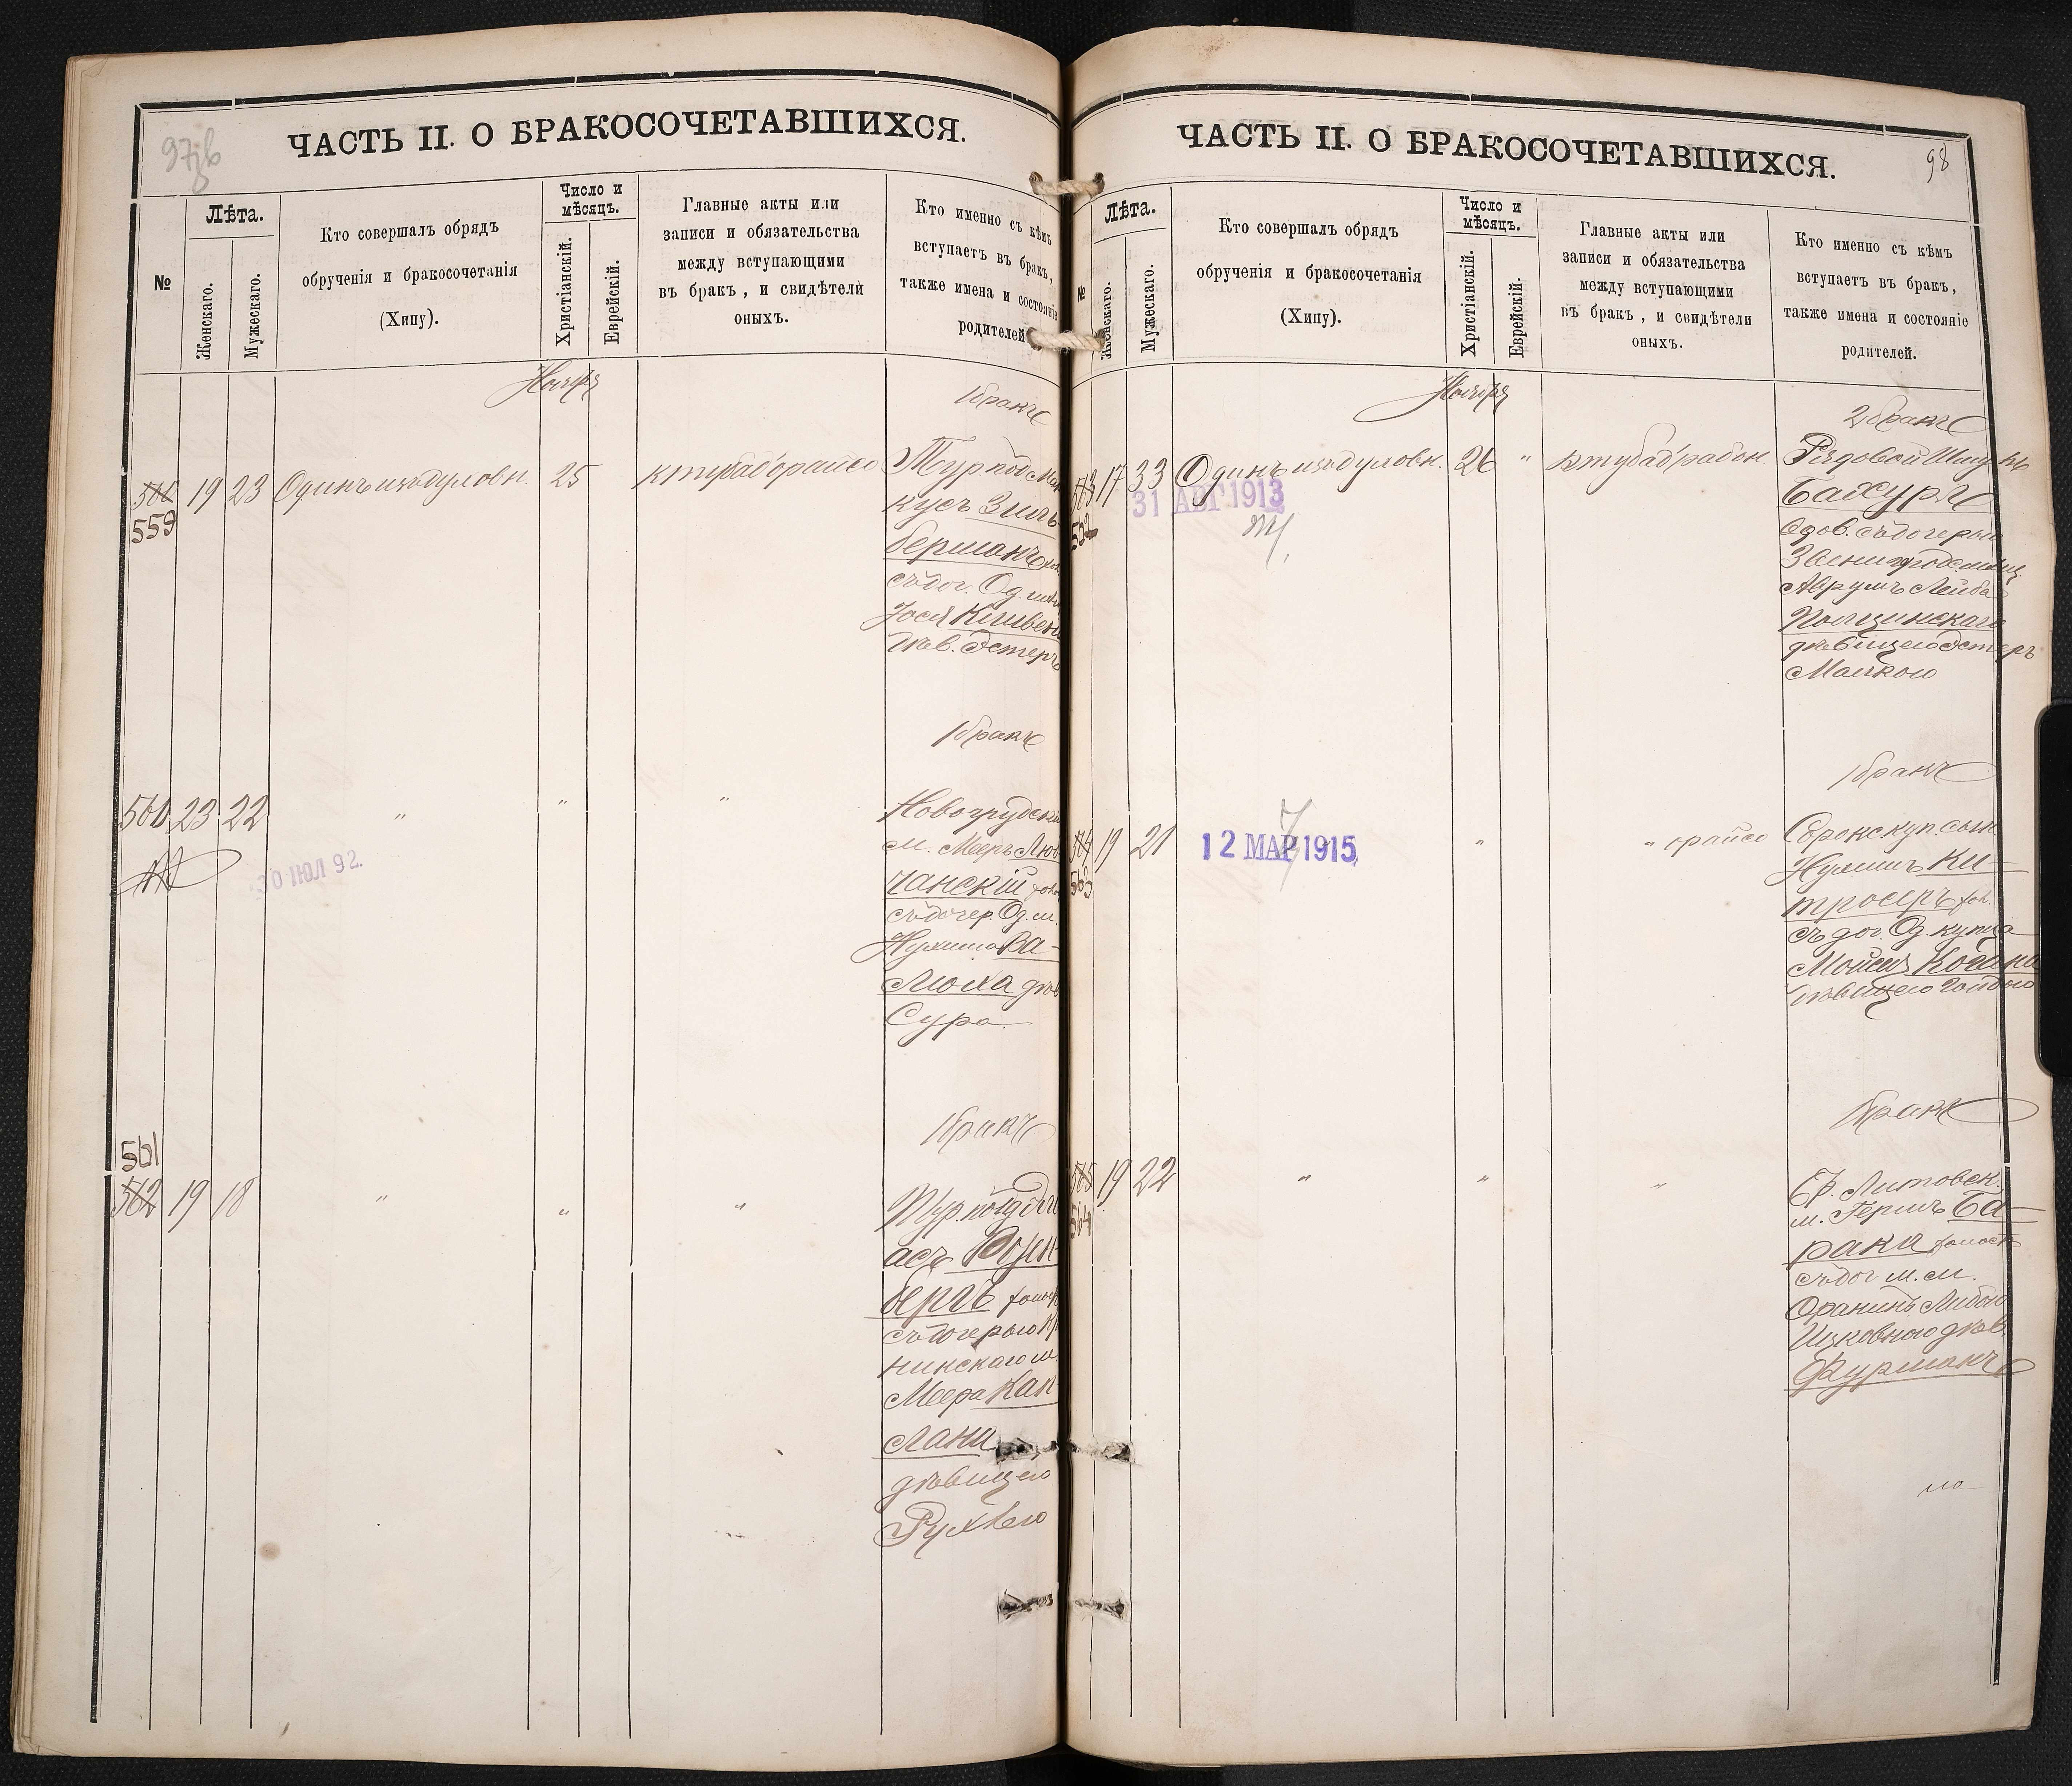 ЧАСТЬ II. О БРАКОСОЧЕТАВШИХСЯ.
№
Лѣта.
Женскаго.
Мужескаго.
Кто совершалъ обрядъ
обрученія и бракосочетанія
(Хипу).
Число и
мѣсяцъ.
Христіанскій.
Еврейскій.
Главные акты или
записи и обязательства
между вступающими
въ бракъ, и свидѣтели
оныхъ.
Кто именно съ кѣмъ
вступаетъ въ бракъ,
также имена и состояніе
родителей
Ноября
1 бракъ
559
19 23 Одинъ изъ духовн. 25
Тур. под. Мар
кусъ Зиль-
берманъ хол.
съ доч. Од. мѣщ
Іося
дѣв. Эстеръ
1 бракъ
560 23 22 " " "
30 ІЮЛ 92.
Новогрудскій
м. Мееръ Люб
чанскій холо
съ дочер. Од. м.
Нухима Ва-
люха дѣв
Сура
1 бракъ
561
562 19 18 " " "
Тур. под
асъ Розен-
бергъ холост
съ дочерью
нинскаго м.
Меера Кап-
лана
дѣвицею
Рухлею
ЧАСТЬ II. О БРАКОСОЧЕТАВШИХСЯ.
98
№
Лѣта.
Женскаго.
Мужескаго.
Кто совершалъ обрядъ
обрученія и бракосочетанія
(Хипу).
Число и
мѣсяцъ.
Христіанскій.
Еврейскій.
Главные акты или
записи и обязательства
между вступающими
въ бракъ, и свидѣтели
оныхъ.
Кто именно съ кѣмъ
вступаетъ въ бракъ,
также имена и состояніе
родителей.
Ноября
2 бракъ
563 17 33 Одинъ изъ духовн. 26 "
562
31 АВГ 1913
Рядовой
Бахуръ
вдов. съ дочерью
Звенигродс. мѣщ
Аврумъ Лейба
Полщинскаго
дѣвицею Эстеръ
Малкою
1 бракъ
564 19 21 " "
563
12 МАР 1915
Сорокс куп. сын
Нухимъ Ки-
тросеръ хол.
съ доч. Од. купца
Мойсея Когана
дѣвицею Голдою
1 бракъ
565 19 22 " " "
564
Бр. Литовск.
м. Гершъ Ба-
рака холост
съ доч м. м.
Оранинъ Либою
Ицковною дѣв.
Фурманъ